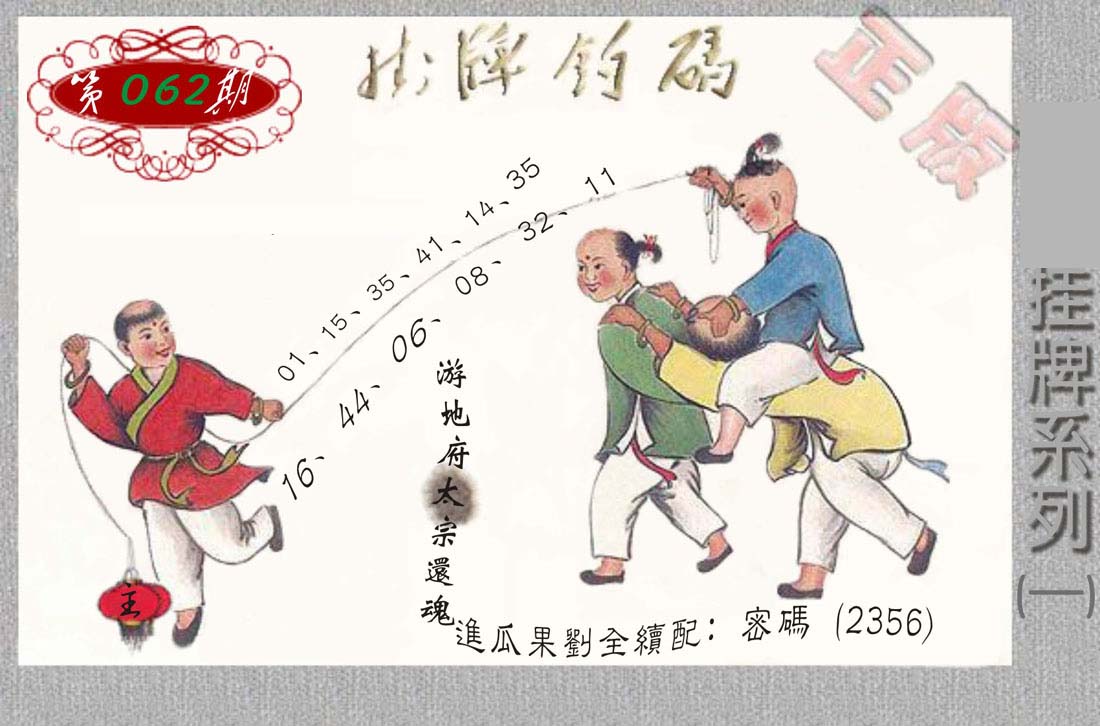 第062期
掛牌釣碼
正版
01、15、35、41、14、35
16、44、06、08、32、11
游地府太宗還魂
進瓜果劉全續配：密碼 (2356)
主
挂牌系列(一)